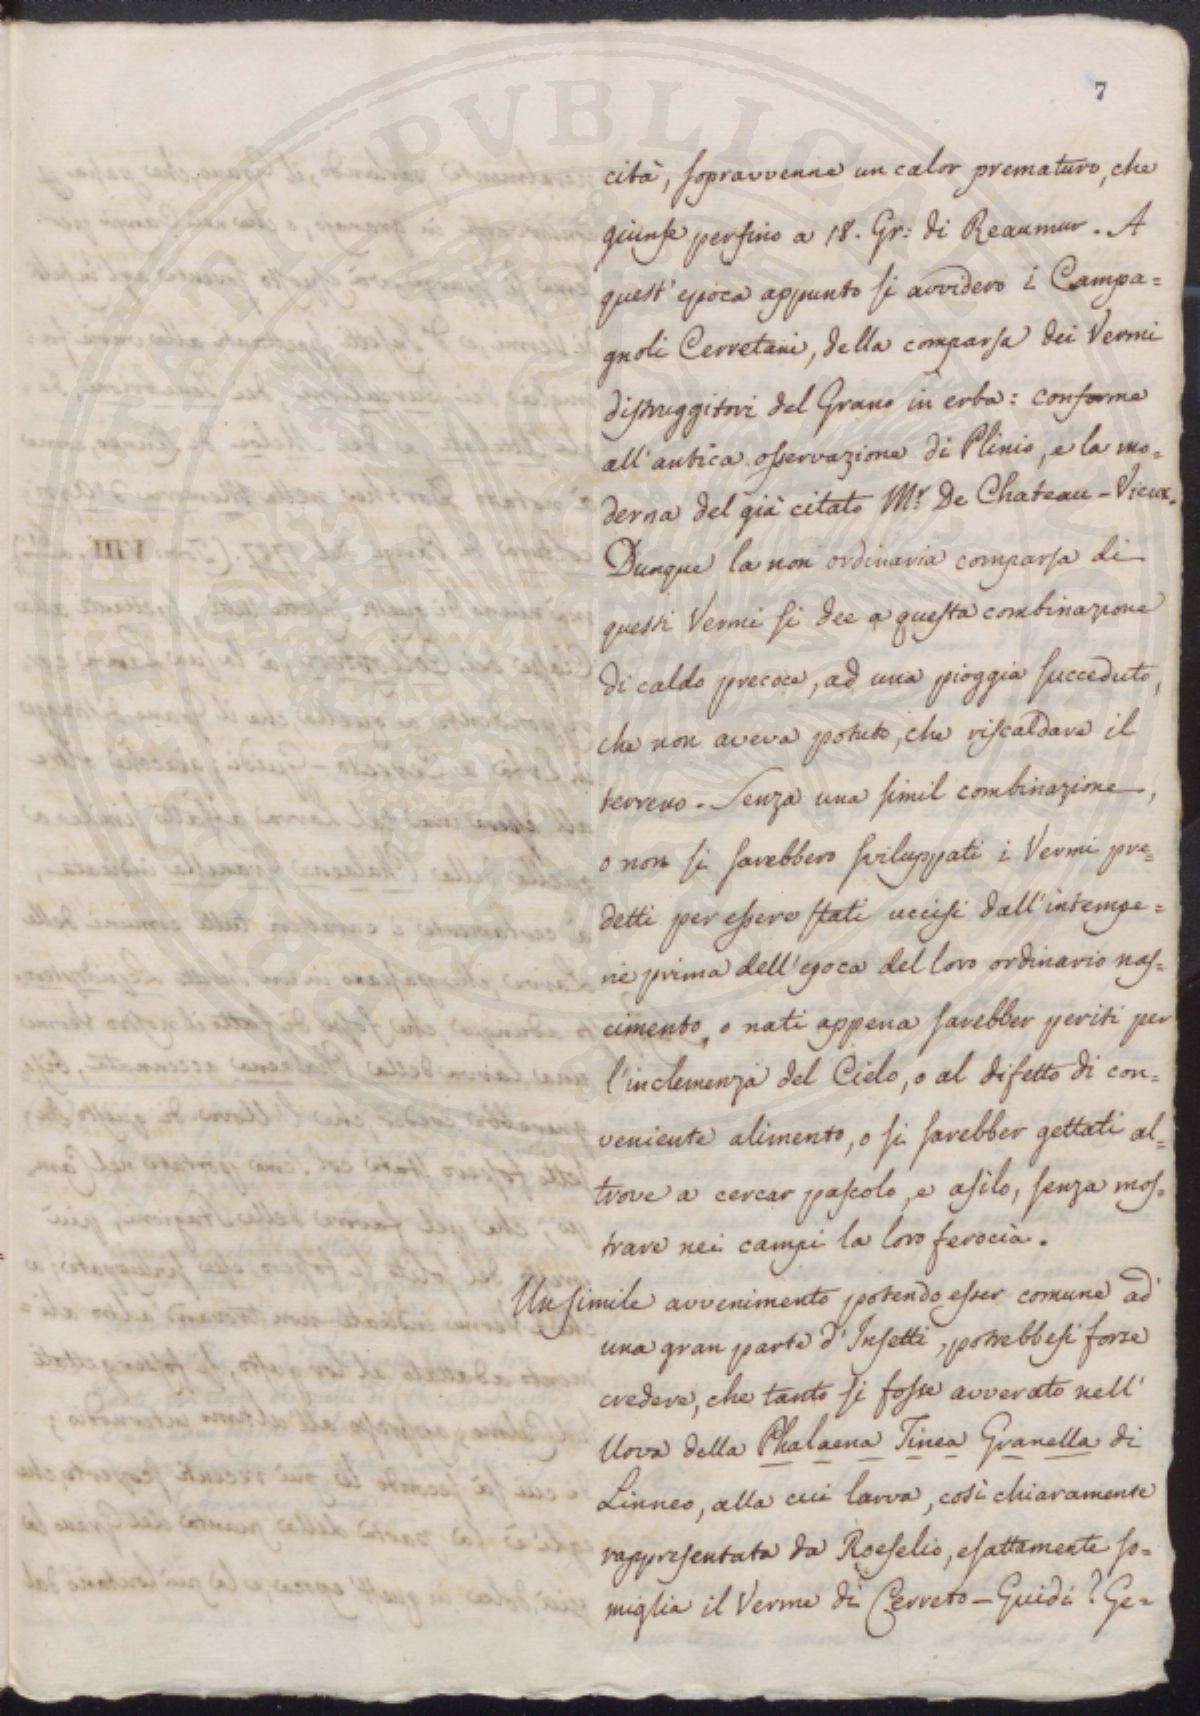 7
cità, sopravvenne un calor prematuro, che
giunse persino a 18. Gr: di Reaumur. A
quest' epoca appunto si avvidero i Campa=
gnoli Cerretani, della comparsa dei Vermi
distruggitori del Grano in erba: conforme
all'antica osservazione di Plinio, e la mo=
derna del già citato Mr. De Chateau-Vieux.
Dunque la non ordinaria comparsa di
questi Vermi si dee a questa combinazione
di caldo precoce, ad una pioggia succeduto,
che non aveva potuto, che riscaldare il
terreno. Senza una simil combinazione,
o non si sarebbero sviluppati i Vermi pre=
detti per essere stati uccisi dall'intempe=
rie prima dell'epoca del loro ordinario nas=
cimento, o nati appena sarebber periti per
l'inclemenza del Cielo, o al difetto di con=
veniente alimento, o si sarebber gettati al=
trove a cercar pascolo, e asilo, senza mos=
trare nei campi la loro ferocia.
Un simile avvenimento potendo esser comune ad
una gran parte d'Insetti, potrebbesi forse
credere, che tanto si fosse avverato nell'
Uova della Phalaena Tinea Granella di
Linneo, alla cui larva, così chiaramente
rappresentata da Roeselio, esattamente so=
miglia il Verme di Cerreto-Guidi? Ge=